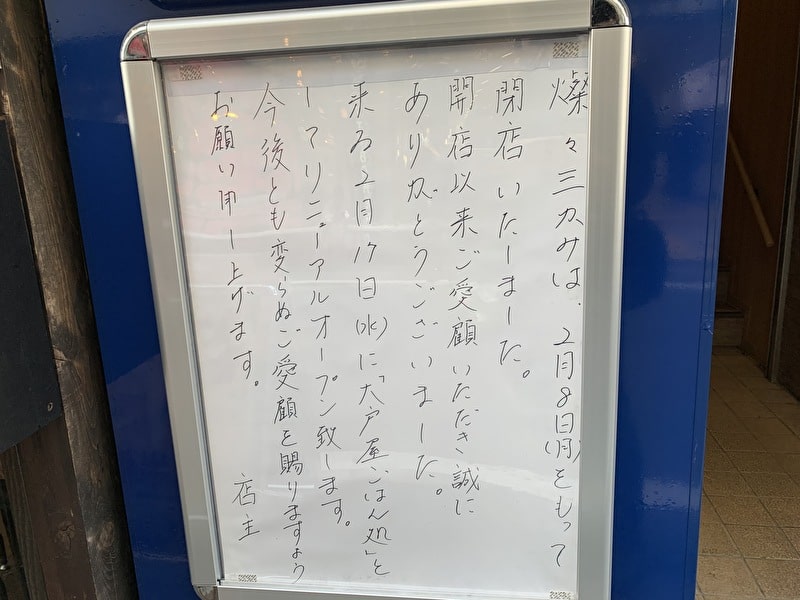 燦々三かみは、2月8日(月)をもって
閉店いたしました。
開店以来ご愛顧いただき誠に
ありがとうございました。
来る2月17日(水)に「大戸屋ごはん処」と
してリニューアルオープン致します。
今後とも変らぬご愛顧を賜りますよう
お願い申し上げます。
店主